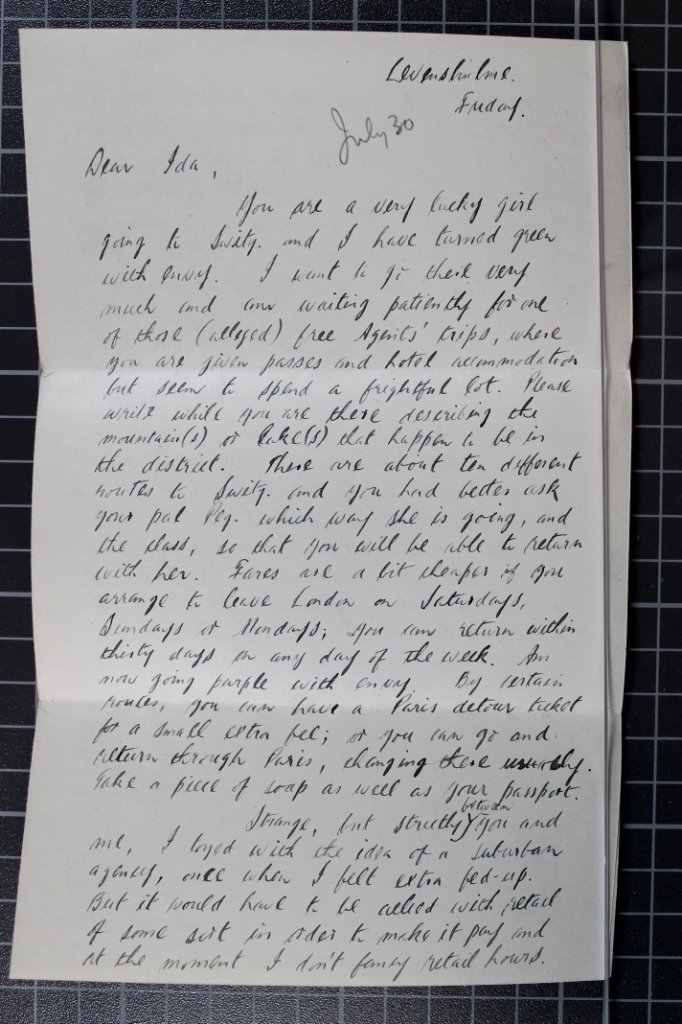 Levenshulme.
Friday.
July 30
Dear Ida,
You are a very lucky girl
going to Switz. and I have turned green
with envy. I want to go there very
much and am waiting patiently for one
of those (alleged) free Agents' trips, where
you are given passes and hotel accommodation
but seem to spend a frightful lot. Please
write while you are there describing the
mountain(s) or lake(s) that happen to be in
the district. There are about ten different
routes to Switz. and you had better ask
your pal Peg. which way she is going, and
the class, so that you will be able to return
with her. Fares are a bit cheaper if you
arrange to leave London on Saturdays,
Sundays or Mondays; you can return within
thirty days on any day of the week. Am
now going purple with envy. By certain
routes, you can have a Paris detour ticket
for a small extra fee; or you can go and
return through Paris, changing there usually.
Take a piece of soap as well as your passport.
Strange, but strictly between you and
me, I toyed with the idea of a suburban
agency, once when I felt extra fed-up.
But it would have to be allied with retail
of some sort in order to make it pay and
at the moment I don't fancy retail hours.